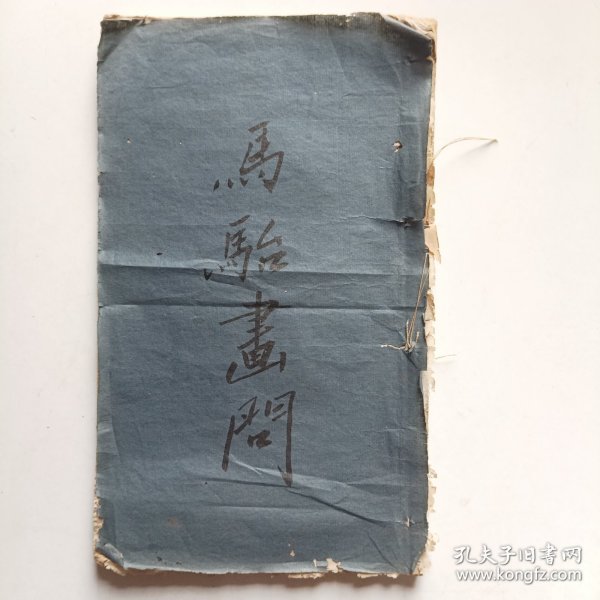 馬駘畫問
孔夫子旧書网
www.kongfz.com